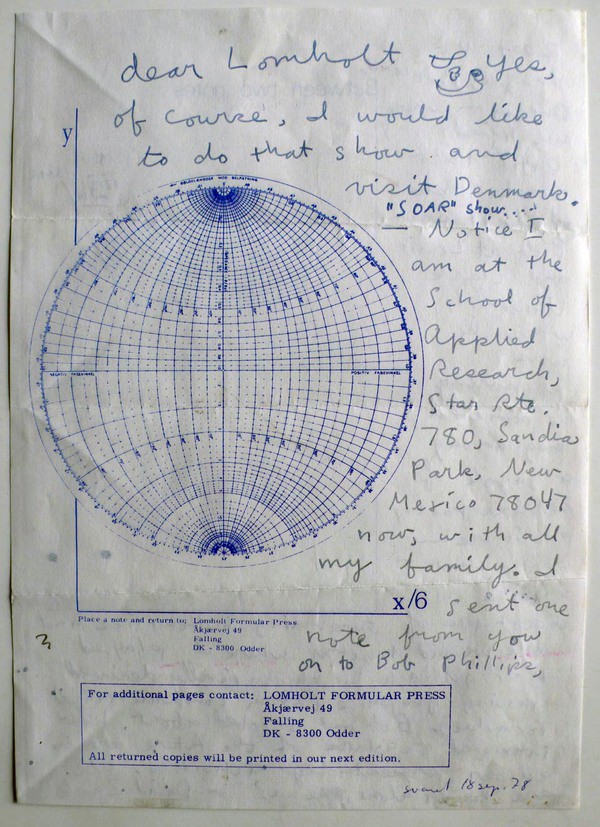 dear Lomholt Yes,
of course, I would like
to do that show. and
visit Denmark.
"SOAR" show....
— Notice I
am at the
School of
Applied
Research,
Star Rte.
780, Sandia
Park, New
Mexico 78047
now, with all
my family. I
sent one
note from you
on to Bob Phillips,
y
NEGATIV FASEVINKEL
POSITIV FASEVINKEL
x/6
Place a note and return to: Lomholt Formular Press
Åkjærvej 49
Falling
DK - 8300 Odder
For additional pages contact: LOMHOLT FORMULAR PRESS
Åkjærvej 49
Falling
DK - 8300 Odder
All returned copies will be printed in our next edition.
svaret 18 sep. 78.